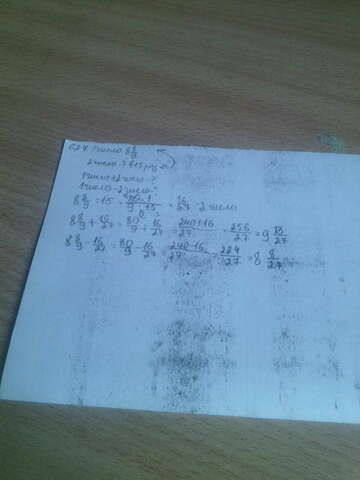 624 1 число 8 8/9
2 число ? в 15 раз м.
1 число + 2 число - ?
1 число - 2 число - ?
8 8/9 : 15 = 80·1/9·15 = 16/27 - 2 число
8 8/9 + 16/27 = 80/9 + 16/27 = 240+16/27 = 256/27 = 9 13/27
8 8/9 - 16/27 = 80/9 - 16/27 = 240-16/27 = 224/27 = 8 8/27